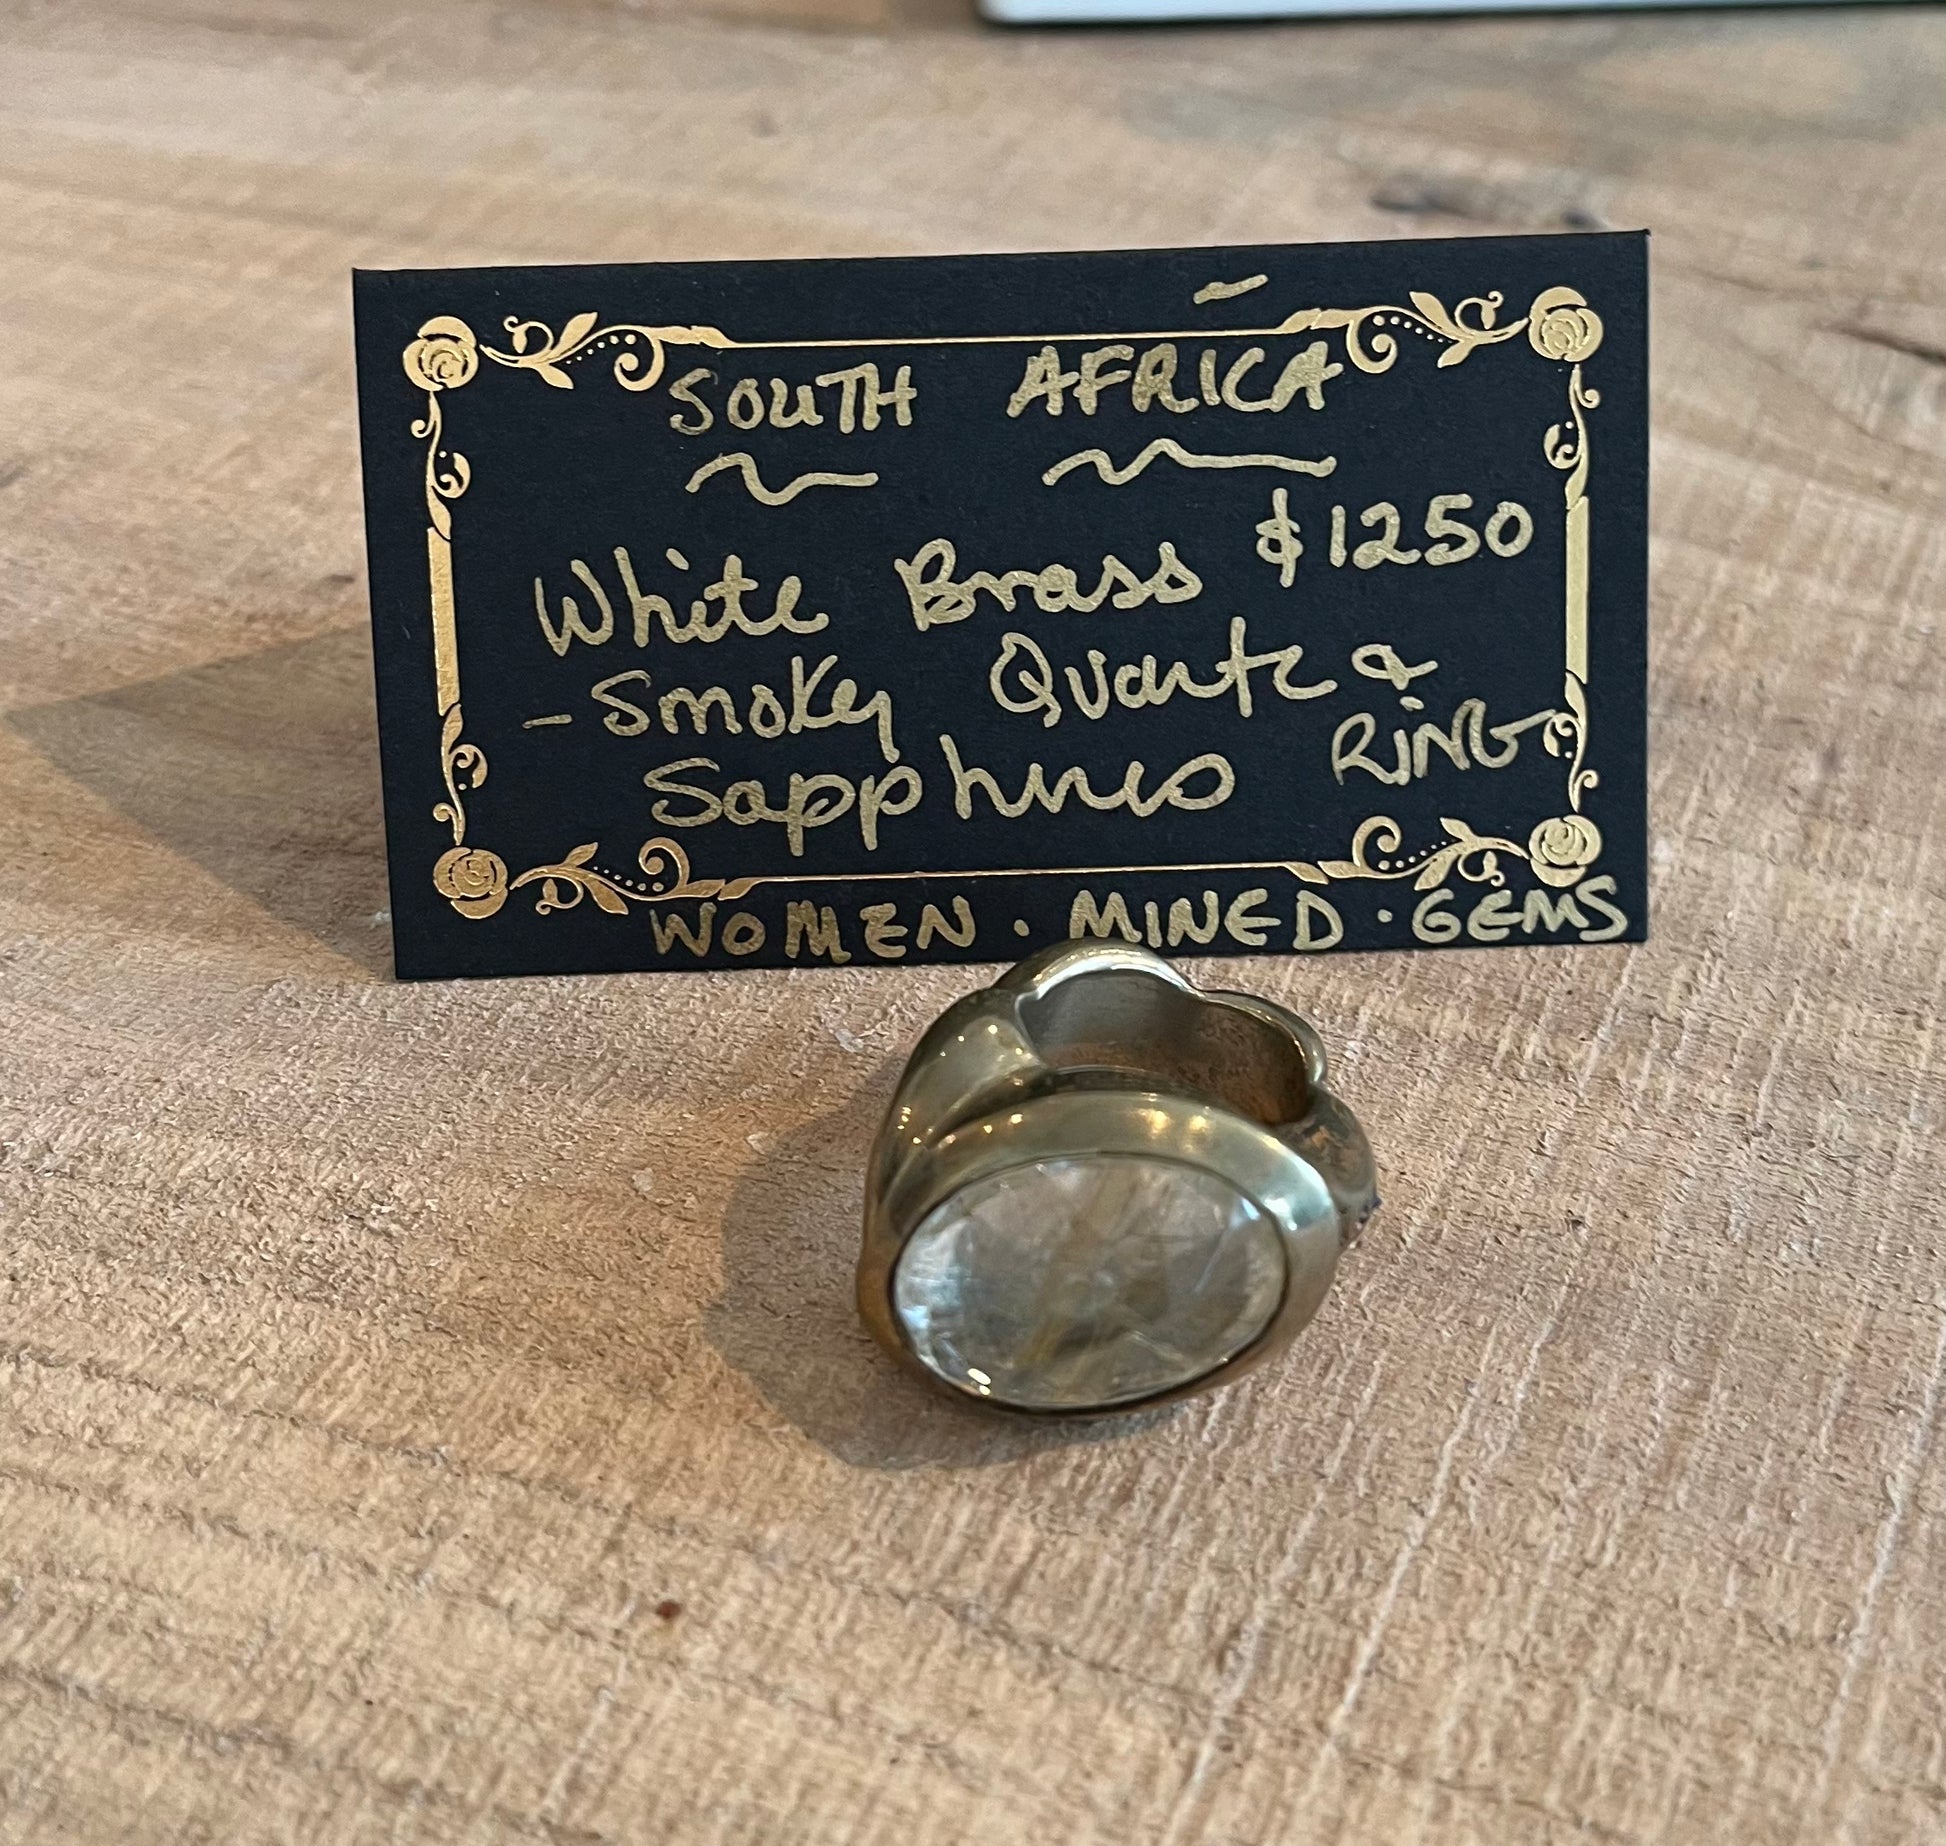 SOUTH AFRICA
White Brass $1250
- Smoky Quartz &
Sapphires RING
WOMEN · MINED · GEMS